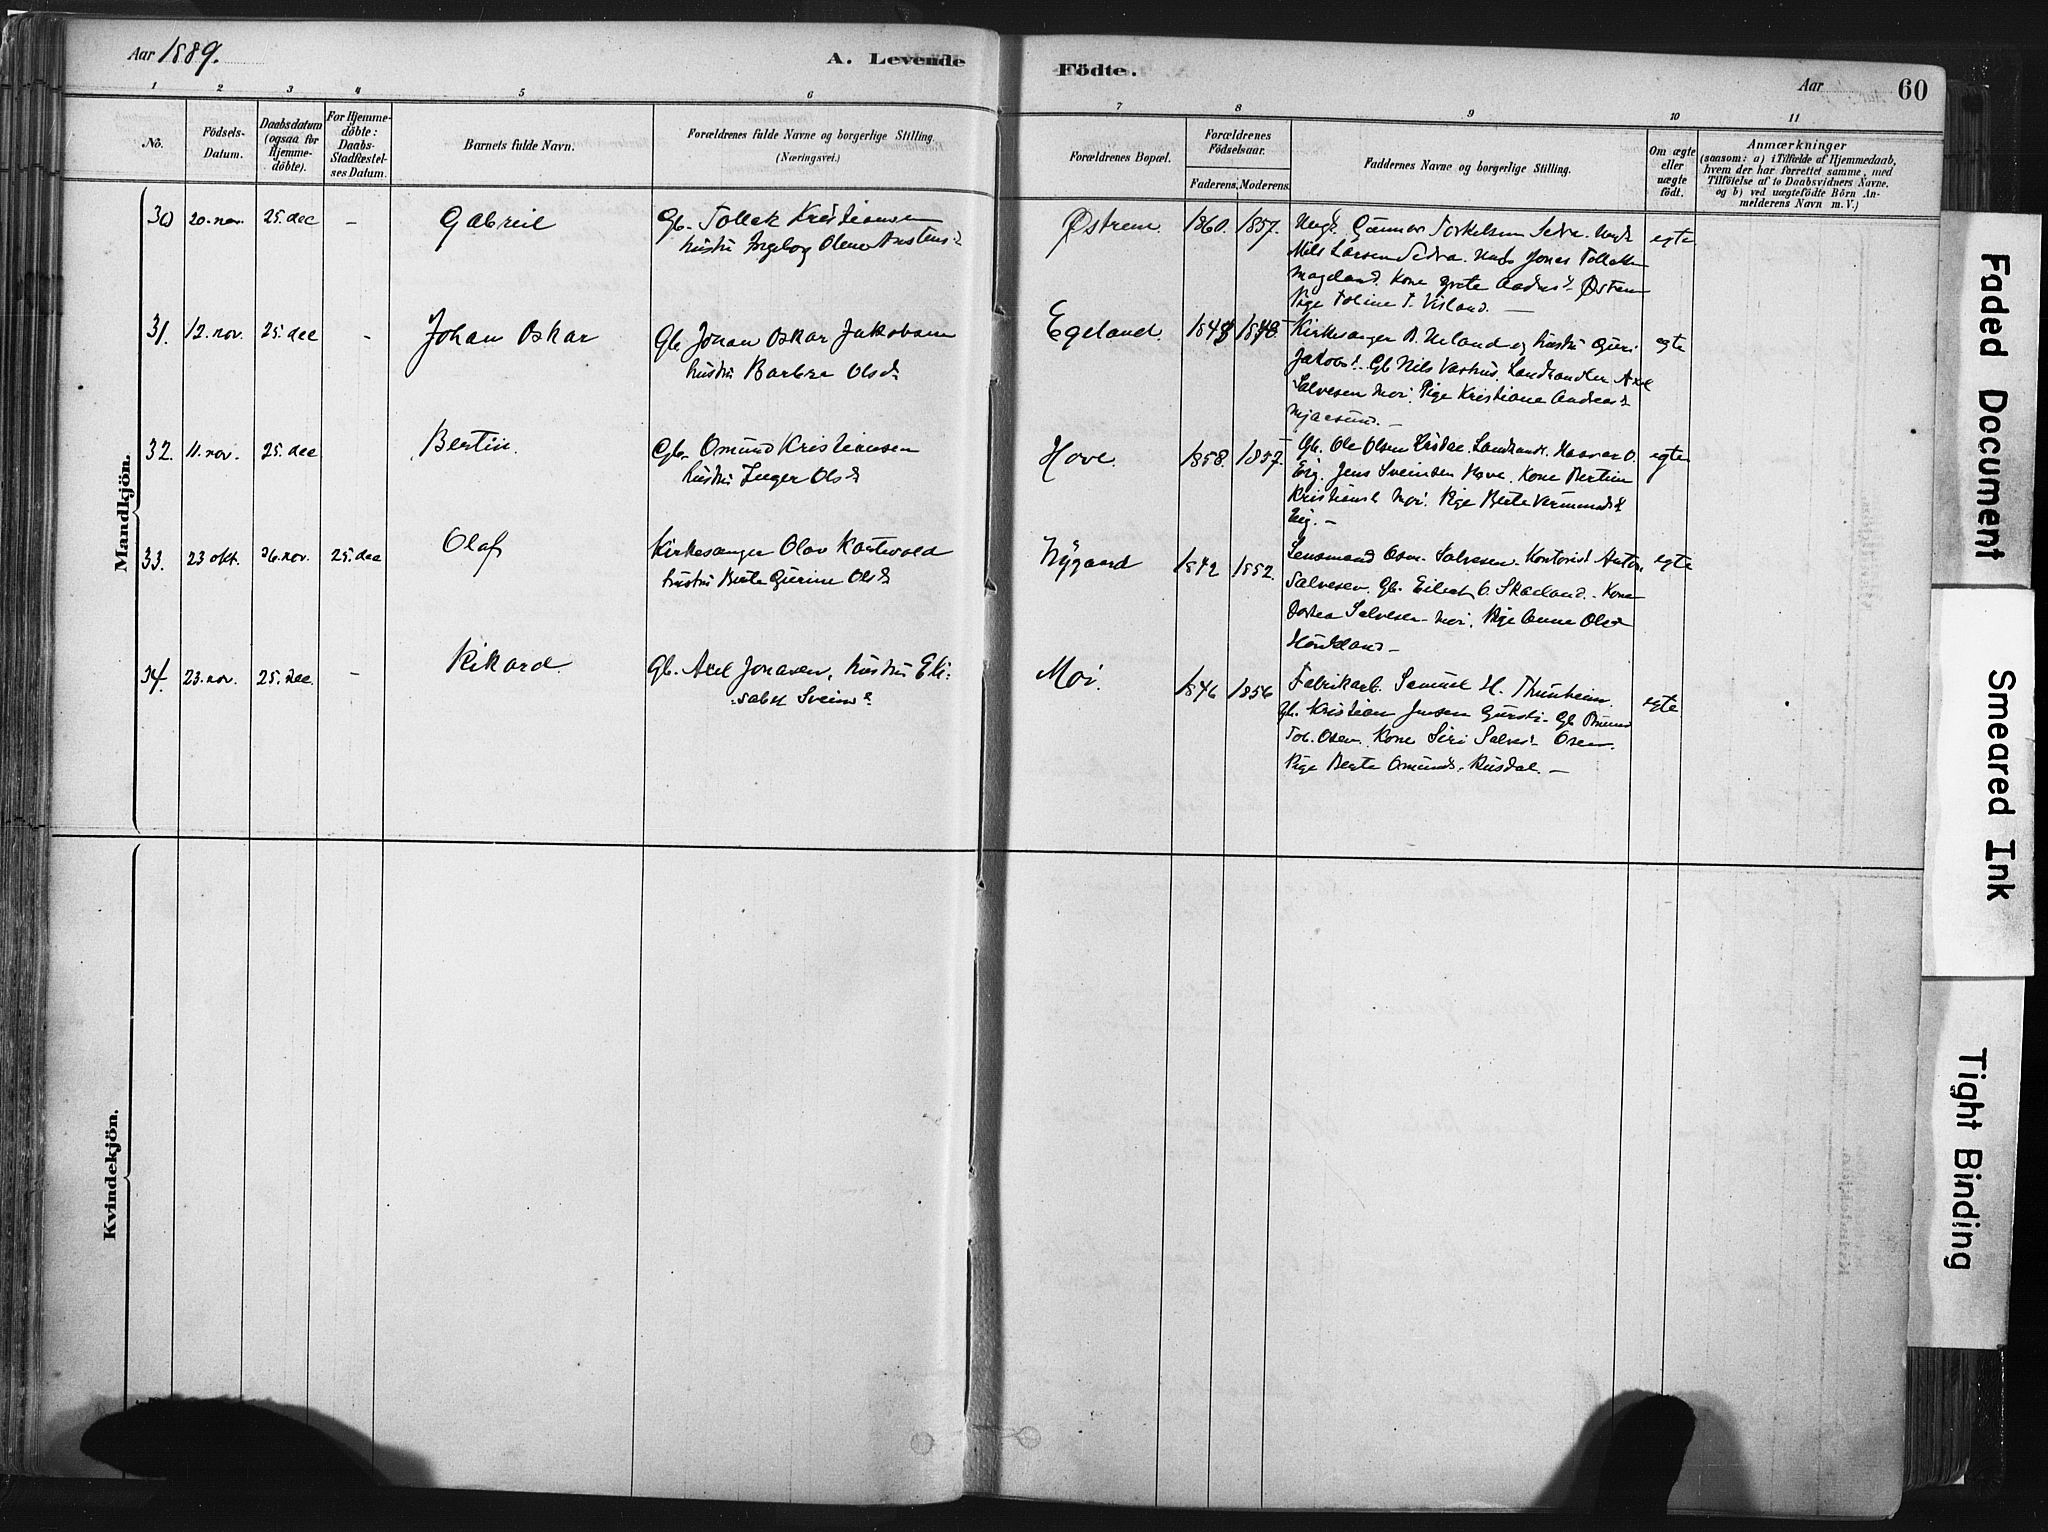 Aar 1889.
A. Levende
Födte.
Aar
60
1
2
3
4
5
6
7
8
9
10
11
No.
Födsels-
Datum.
Daabsdatum
(ogsaa for
Hjemme-
döbte).
For Hjemme-
döbte:
Daabs-
Stadfæstel-
ses Datum.
Barnets fulde Navn.
Forældrenes fulde Navne og borgerlige Stilling
(Næringsvei.)
Forældrenes Bopæl.
Forældrenes
Födselsaar.
Faderens. Moderens.
Faddernes Navne og borgerlige Stilling.
Om ægte
eller
uægte
födt.
Anmærkninger
(saasom: a) i Tilfælde af Hjemmedaab,
hvem der har forrettet samme, med
Tilföielse af to Daabsvidners Navne,
og b) ved uægtefödte Börn An-
melderens Navn m. V.)
Mandkjön.
30 20. nov. 25. dec -
Gabriel
Gb. Tollak Kristiansen
hustru Ingeborg Olene
Østrem
1860. 1857.
Ungk. Gunnar Torkelsen Sedva. Ungk
Nils Larsen Sedva. Jonas
Mageland. Kone Østrem
Pige Toline T. Visland. -
egte
31. 12. nov. 25. dec -
Johan Oskar
Gb Jonan Oskar Jakobsen
hustru Barbra Olsd.
Egeland.
1848 1848.
Kirkesanger og hustru Guri
Jakobsd. Gb Nils Landhandler Axel
Salvesen Moi. Pige Kristiane Andreasd.
egte
32. 11. nov. 25. dec
Bertin.
Gb. Omund Kristiansen
hustru Inger Olsd.
Hove.
1858. 1857.
Gb. Ole Olsen Landhandl. Haavar O.
Eig. Jens Sveinsen Hove. Kone Bertine
Kristiansd. Moi. Pige Berte
Eig. -
egte
33. 23 okt. 26. nov. 25. dec
Olaf
Kirkesanger Olav
hustru Berte Gurine Olsd.
Nygaard
1842 1852.
Lensmand Salvesen. Kontorist Anton
Salvesen. Gb. Eilert O. Skaeland. Kone
Dortea Salvesen Moi. Pige Anne Olsd
egte
34. 23. nov. 25. dec. -
Rikard
Gb. Axel Jonasen, hustru Eli-
sabet Sveins
Moi.
1846 1856
Fabrikarb. Samuel H. Thunheim.
Gb. Kristian Jensen Gb
Tob. Osen. Kone Siri Salves Osen.
Pige Berte Omunds. Rusdal. -
egte
Kvindekjön.
Faded Document
Smeared Ink
Tight Binding